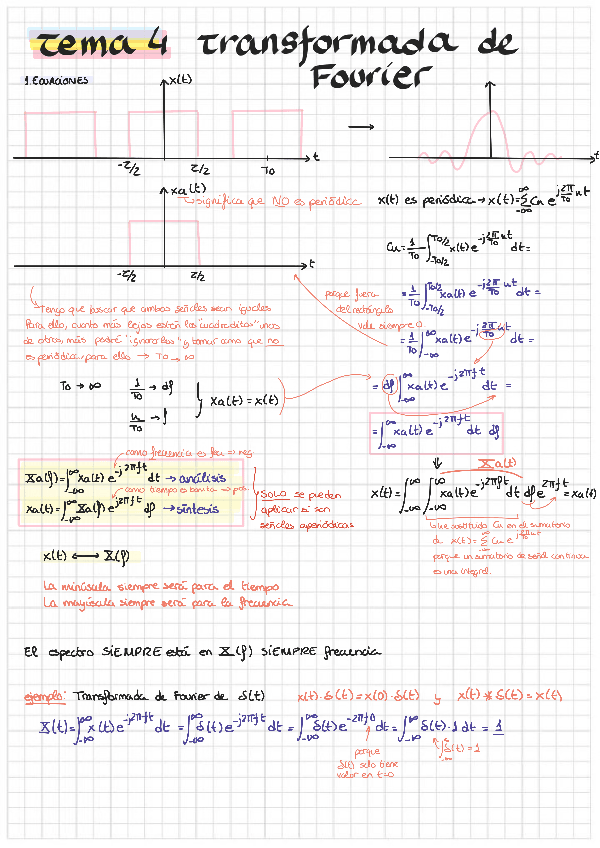 Tema 4 Transformada de Fourier
1. ECUACIONES
x(t)
-τ/2 τ/2 To t
t
xa(t)
significa que NO es periódica
-τ/2 τ/2 t
x(t) es periódica → x(t)=∑_{-∞}^{∞} Cn e^{j 2π/To nt}
Cn = 1/To ∫_{-To/2}^{To/2} x(t) e^{-j 2π/To nt} dt =
= 1/To ∫_{-To/2}^{To/2} xa(t) e^{-j 2π/To nt} dt =
porque fuera
del rectángulo
vale siempre 0
= 1/To ∫_{-∞}^{∞} xa(t) e^{-j 2π/To nt} dt =
= df ∫_{-∞}^{∞} xa(t) e^{-j2πft} dt =
= ∫_{-∞}^{∞} xa(t) e^{-j2πft} dt df
Tengo que buscar que ambas señales sean iguales
Para ello, cuanto más lejos estén los cuadraditos "unos
de otros, más podré "ignorarlos" y tomar como que no
es periódica, para ello → To → ∞
To → ∞ 1/To → df
n/To → f
xa(t) = x(t)
como frecuencia es fea → neg
Xa(f) = ∫_{-∞}^{∞} xa(t) e^{-j2πft} dt → análisis
como tiempo es bonita → pos
xa(t) = ∫_{-∞}^{∞} Xa(f) e^{j2πft} df → síntesis
SOLO se pueden
aplicar si son
señales aperiódicas
Xa(t)
x(t) = ∫_{-∞}^{∞} ∫_{-∞}^{∞} xa(t) e^{-j2πft} dt df e^{j2πft} = xa(t)
he sustituido Cn en el sumatorio
de x(t) = ∑_{-∞}^{∞} Cn e
porque un sumatorio de señal continua
es una integral.
x(t) ⟷ X(f)
La minúscula siempre será para el tiempo
La mayúscula siempre será para la frecuencia
El espectro SIEMPRE está en X(f) SIEMPRE frecuencia
ejemplo: Transformada de Fourier de δ(t) x(t)·δ(t) = x(0)·δ(t) y x(t) * δ(t) = x(t)
X(t) = ∫_{-∞}^{∞} x(t) e^{-j2πft} dt = ∫_{-∞}^{∞} δ(t) e^{-j2πft} dt = ∫_{-∞}^{∞} δ(t) e^{-2πf0} dt = ∫_{-∞}^{∞} δ(t)·1 dt = 1
porque
δ(t) solo tiene
valor en t=0
∫_{-∞}^{∞} δ(t) = 1